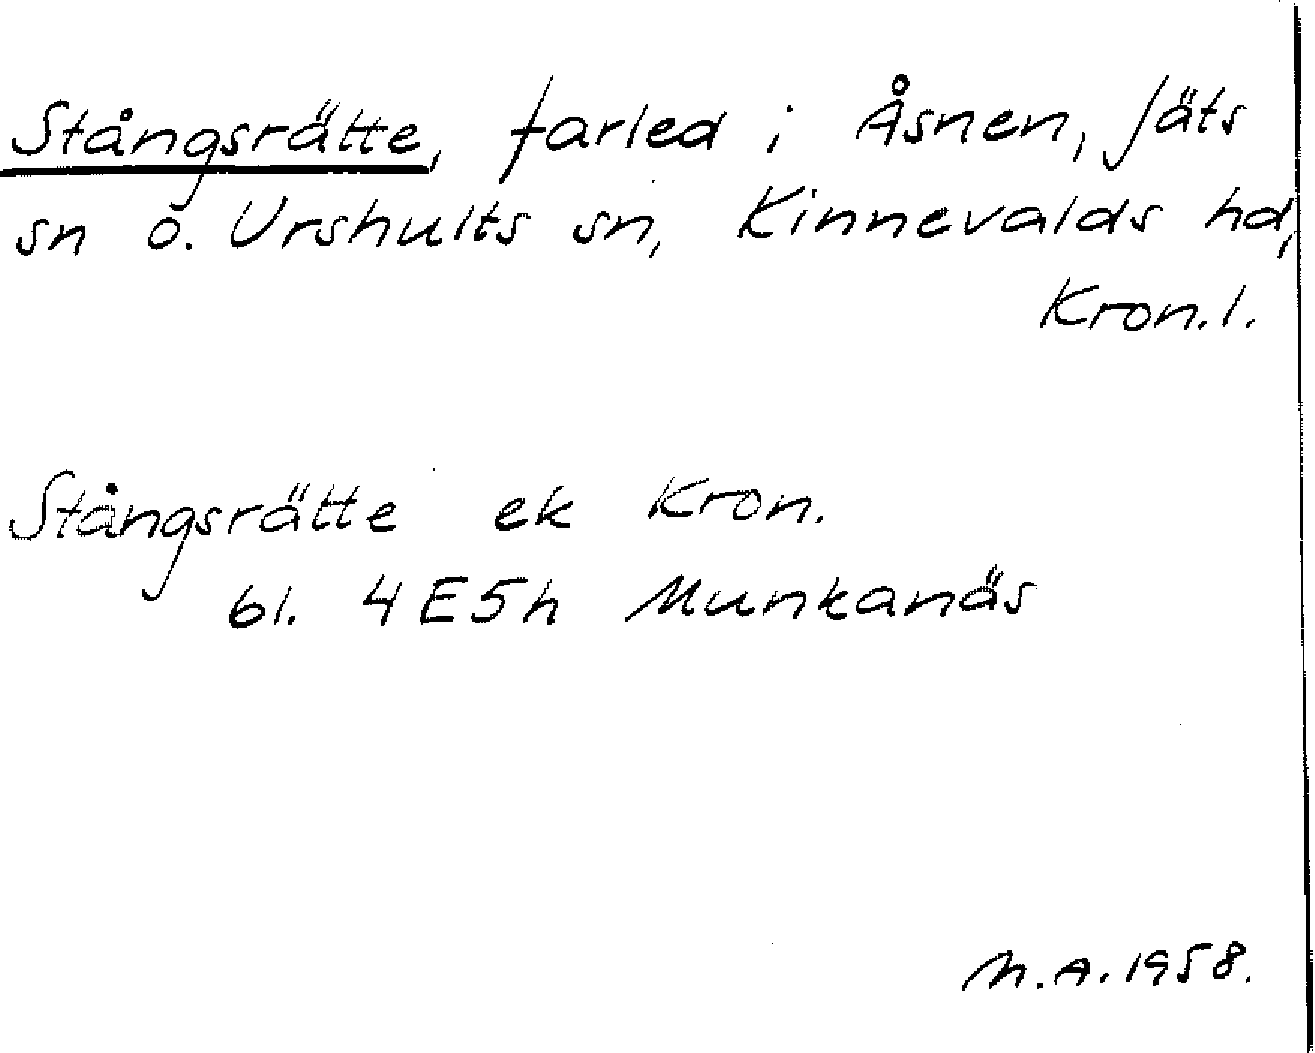 Stångsrätte, farled i Åsnen, Jäts
sn o. Urshults sn, Kinnevalds hd,
Kron.l.
Stångsrätte ek Kron.
bl. 4E5h Munkanäs
M.A.1958.